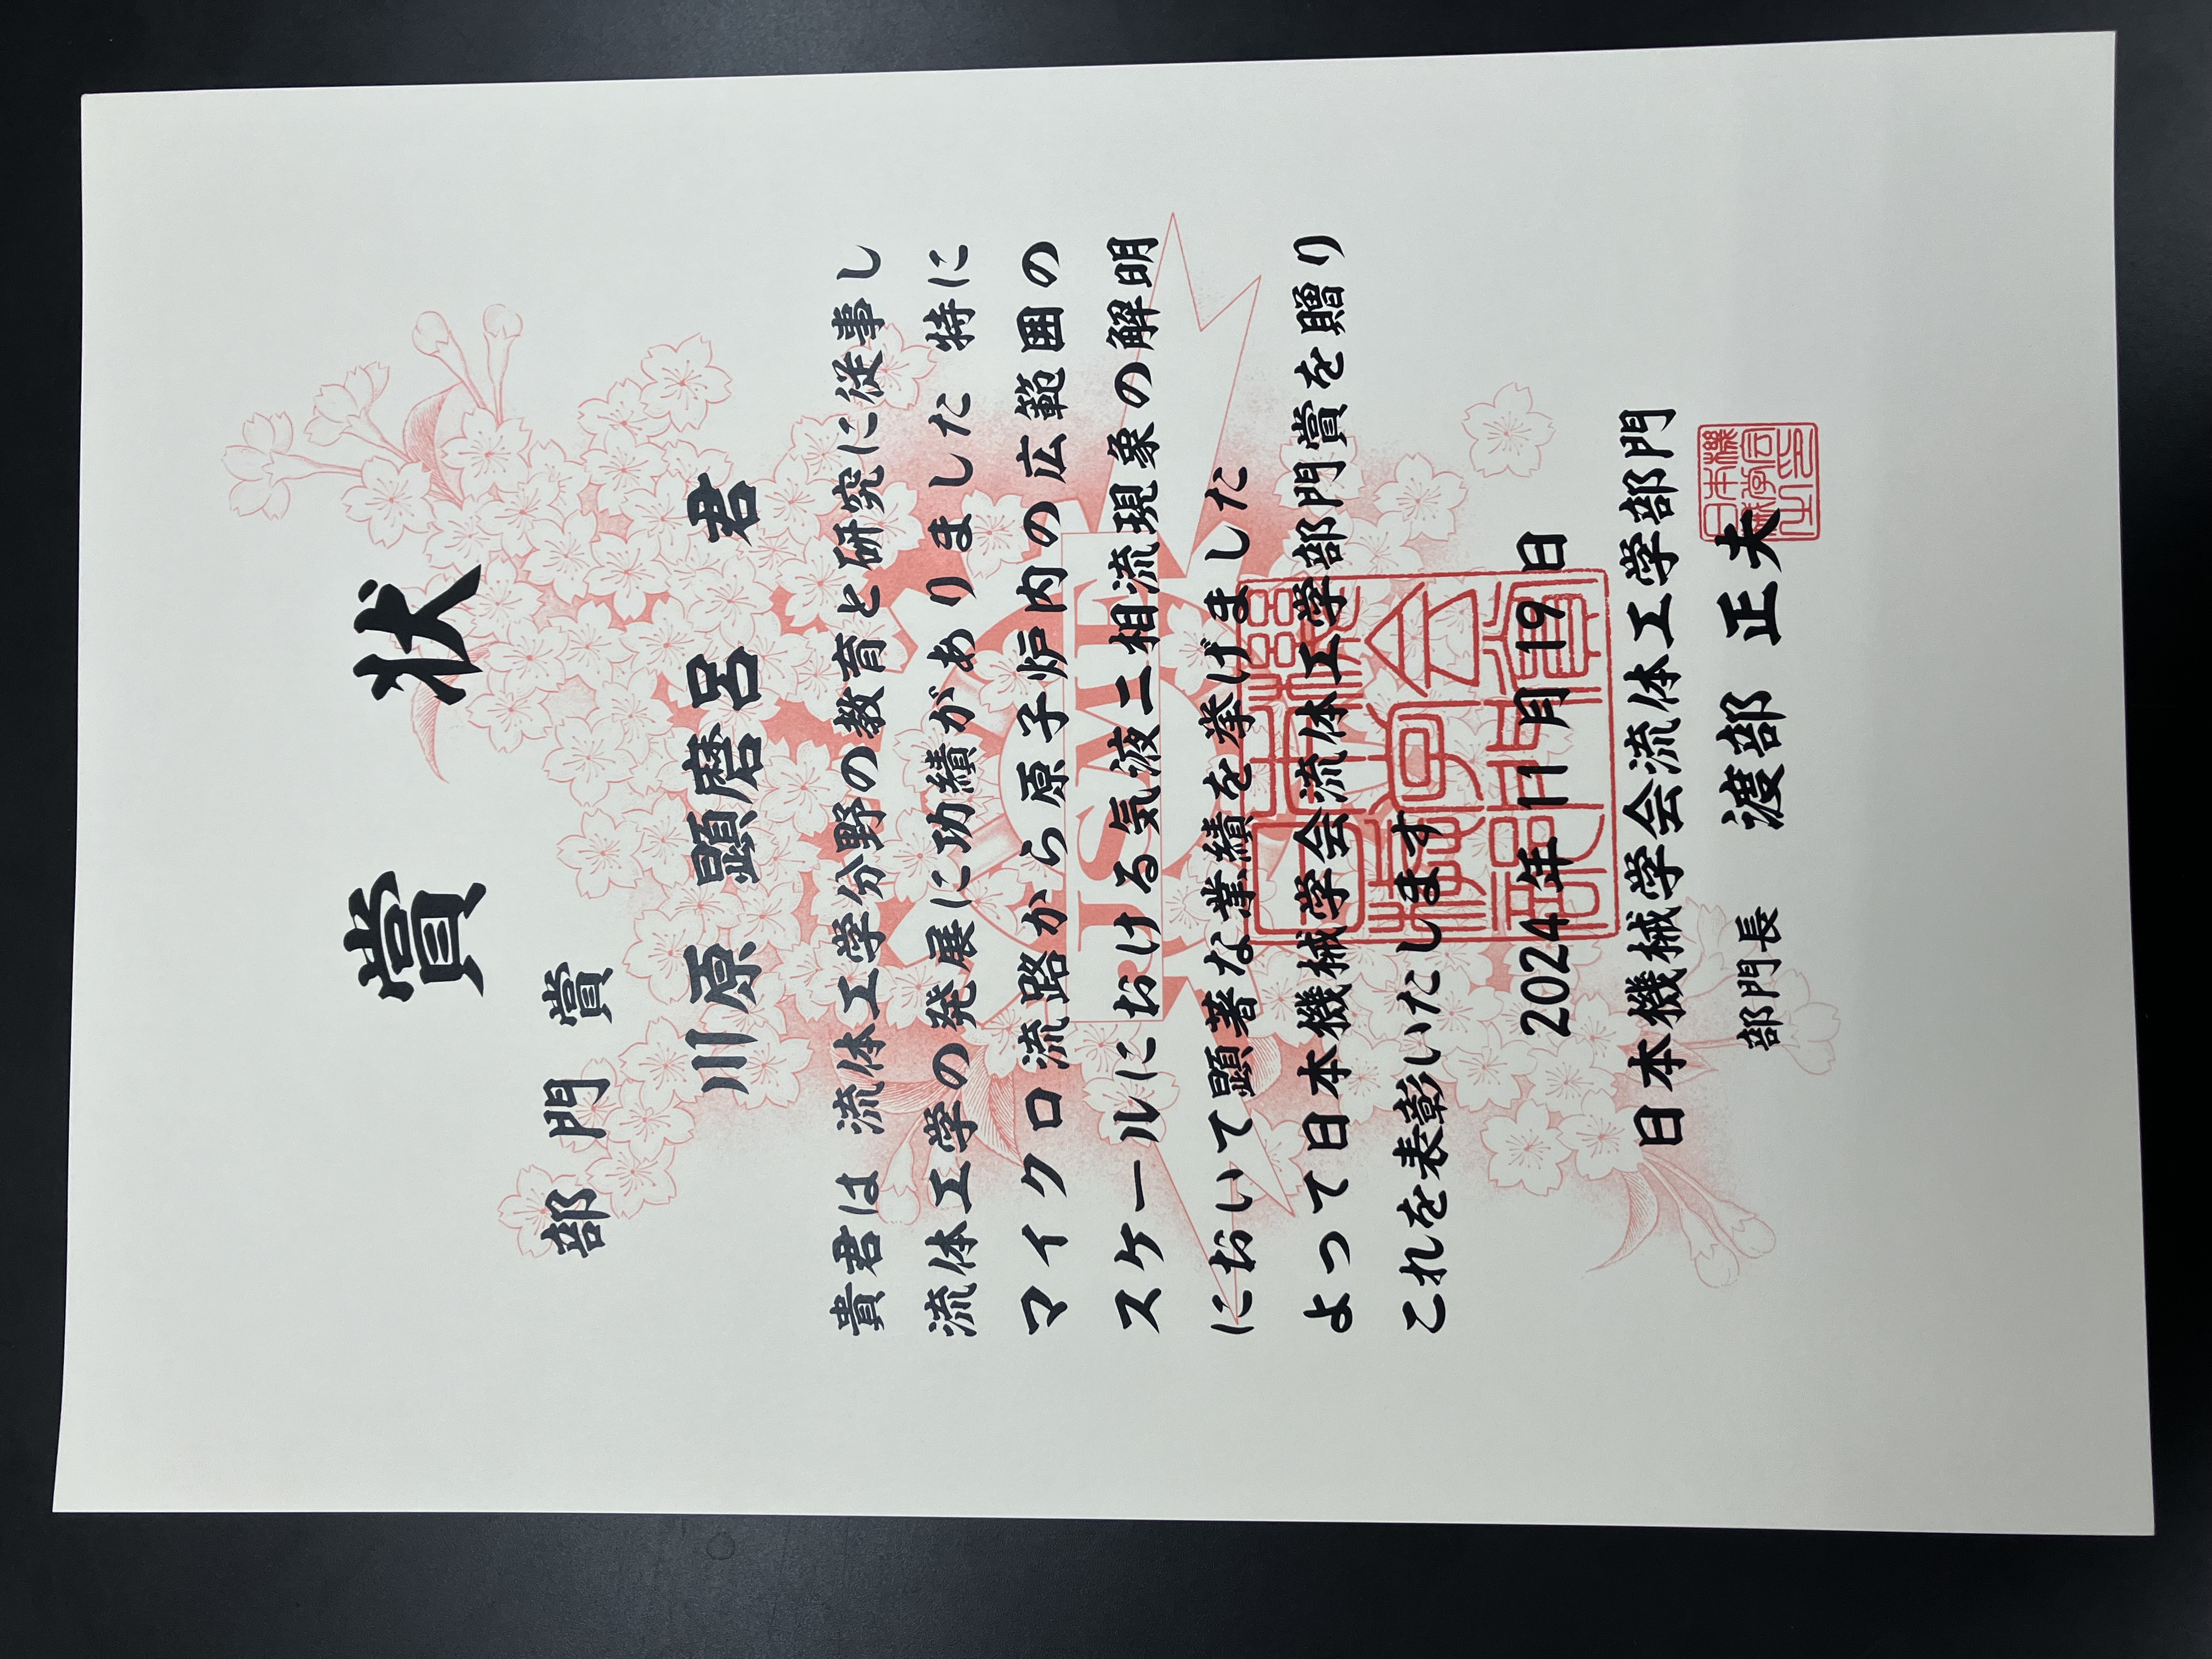 賞状
部門賞
川原 顕磨呂 君
貴君は 流体工学分野の教育と研究に従事し
流体工学の発展に功績がありました 特に
マイクロ流路から原子炉内の広範囲の
スケールにおける気液二相流現象の解明
において顕著な業績を挙げました
よって日本機械学会流体工学部門賞を贈り
これを表彰いたします
2024年11月19日
日本機械学会流体工学部門
部門長 渡部 正夫
JSME